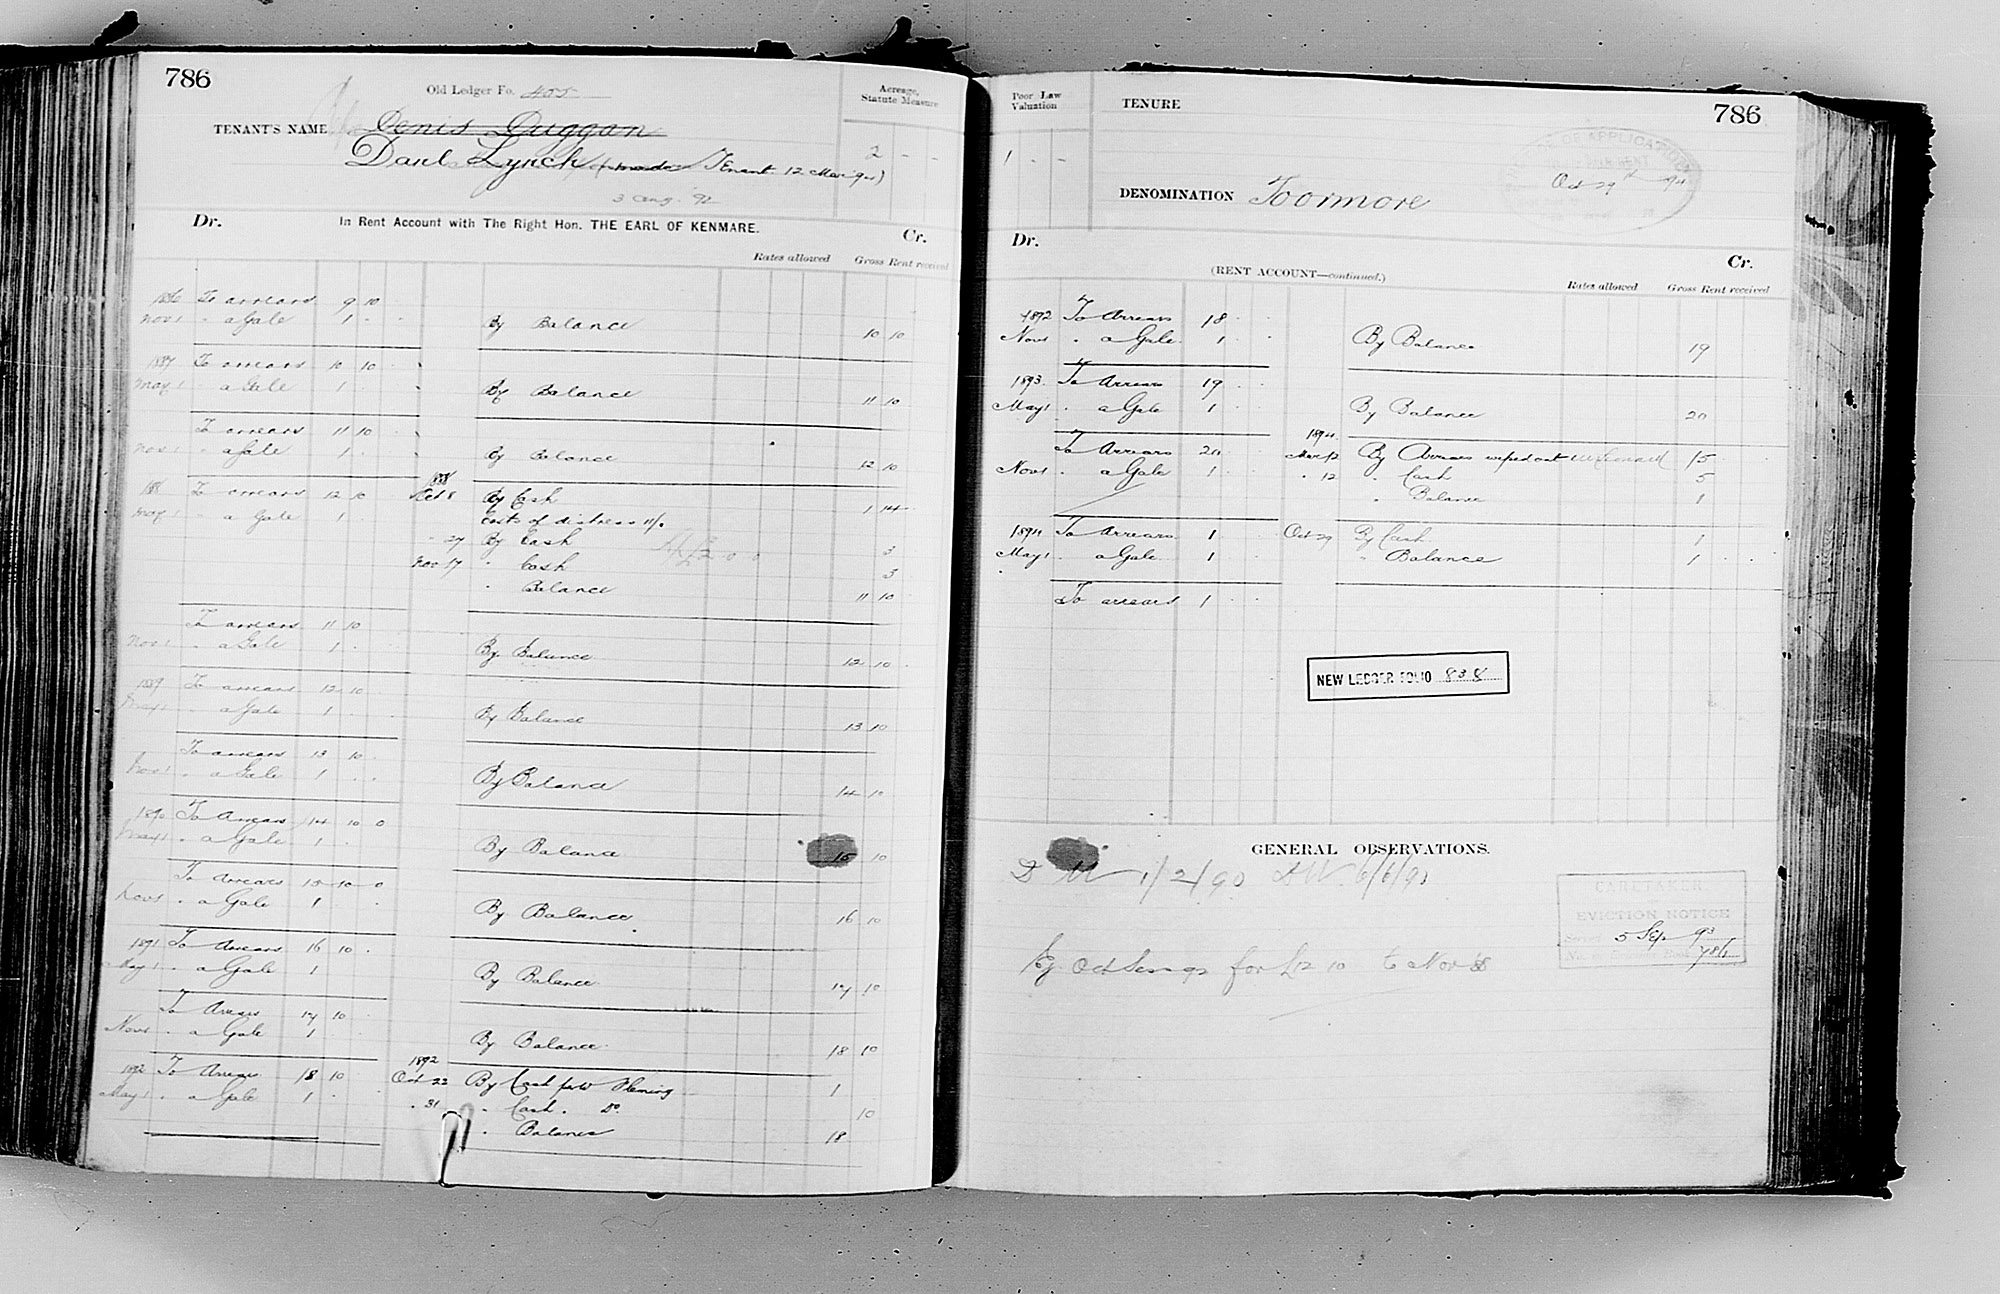 786
Old Ledger Fo. 405
Acreage, Statute Measure
TENANT'S NAME Denis Duggan
Danl Lynch (made Tenant 12 Mar 94)
2 - -
3 Aug. 92
Dr. In Rent Account with The Right Hon. THE EARL OF KENMARE. Cr.
Rates allowed Gross Rent received
1886 To arrears 9 10
Nov 1 " a Gale 1 - - By Balance 10 10
1887 To arrears 10 10
May 1 " a Gale 1 By Balance 11 10
To arrears 11 10
Nov 1 " a Gale 1 By Balance 12 10
188 To arrears 12 10 1888 Oct 8 By Cash 1 14
May 1 " a Gale 1 Costs of distress 11/.
" 27 By Cash 3
Nov 17 " Cash 3
" Balance 11 10
To arrears 11 10
Nov 1 " a Gale 1 By Balance 12 10
1889 To arrears 12 10
May 1 " a Gale 1 By Balance 13 10
To arrears 13 10
Nov 1 " a Gale 1 By Balance 14 10
1890 To Arrears 14 10 0
May 1 " a Gale 1 By Balance 15 10
To Arrears 15 10 0
Nov 1 " a Gale 1 By Balance 16 10
1891 To Arrears 16 10
May 1 " a Gale 1 By Balance 17 10
To Arrears 17 10
Nov 1 " a Gale 1 By Balance 18 10
1892 To Arrears 18 10 1892 Oct 22 By Cash per W Fleming 1
May 1 " a Gale 1 " 31 " Cash . Do. 10
" Balance 18
Poor Law Valuation
TENURE
786
1 - -
Oct 29th 94
DENOMINATION Toormore
Dr. (RENT ACCOUNT—continued.) Cr.
Rates allowed Gross Rent received
1892 To Arrears 18 - -
Nov 1 " a Gale 1 - - By Balance 19
1893 To Arrears 19 - -
May 1 " a Gale 1 - - By Balance 20
To Arrears 20 - - 1894 Mar 12 By Arrears wiped out 15
Nov 1 " a Gale 1 - - " 12 " Cash 5
" Balance 1
1894 To Arrears 1 - - Oct 29 By Cash 1
May 1 " a Gale 1 - - " Balance 1 - -
To arrears 1 - -
NEW LEDGER FOLIO 838
GENERAL OBSERVATIONS.
1/2/90 6/6/91
CARETAKER
EVICTION NOTICE
5 Sep 93
786
for £12 10 to Nov 88